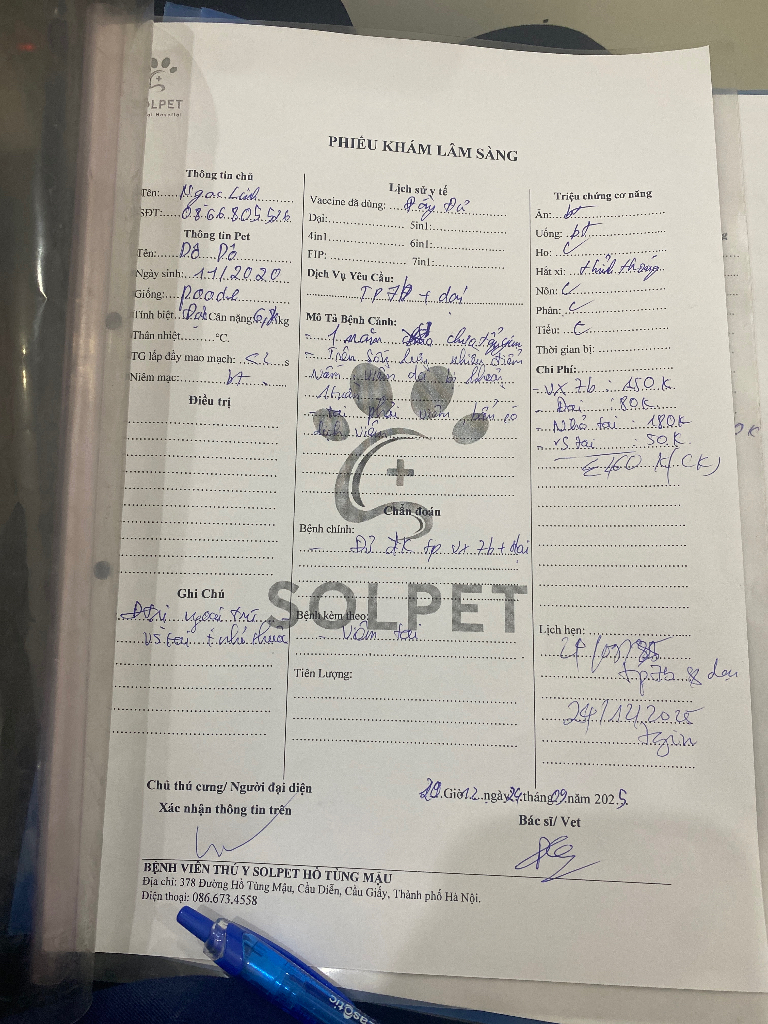 SOLPET
PHIẾU KHÁM LÂM SÀNG
Thông tin chủ
Tên: Ngọc Linh
SĐT: 0866.805.526
Thông tin Pet
Tên: Dô Dô
Ngày sinh: 11/2020
Giống: poode
Tính biệt: Đực Cân nặng: 6, kg
Thân nhiệt: °C.
TG lấp đầy mao mạch: <2 s
Niêm mạc: bt
Điều trị
Ghi Chú
Đtrị ngoại trú
VS tai + nhỏ thuốc
Lịch sử y tế
Vaccine đã dùng: Đầy Đủ
Dại: 5in1:
4in1: 6in1:
FIP: 7in1:
Dịch Vụ Yêu Cầu:
TP 7b + dại
Mô Tả Bệnh Cảnh:
- 1 năm chưa tẩy giun
- Trên nhiều
nấm viêm da
- tai phải viêm, bẩn có
dịch viêm
Chẩn đoán
Bệnh chính:
- Đủ ĐK tp vx 7b + dại
SOLPET
Bệnh kèm theo:
- Viêm tai
Tiên Lượng:
Triệu chứng cơ năng
Ăn: bt
Uống: bt
Ho: C
Hắt xì: thỉnh thoảng
Nôn: C
Phân: C
Tiểu: C
Thời gian bị:
Chi Phí:
- VX 7b : 150K
- Dại : 80K
- Nhỏ tai : 180K
- VS tai : 50K
460 K (CK)
Lịch hẹn:
tp 7b & dại
24/12/2025
tgiun
Chủ thú cưng/ Người đại diện
Xác nhận thông tin trên
20 Giờ 12 ngày 24 tháng 09 năm 2025
Bác sĩ/ Vet
BỆNH VIỆN THÚ Y SOLPET HỒ TÙNG MẬU
Địa chỉ: 378 Đường Hồ Tùng Mậu, Cầu Diễn, Cầu Giấy, Thành phố Hà Nội.
Điện thoại: 086.673.4558